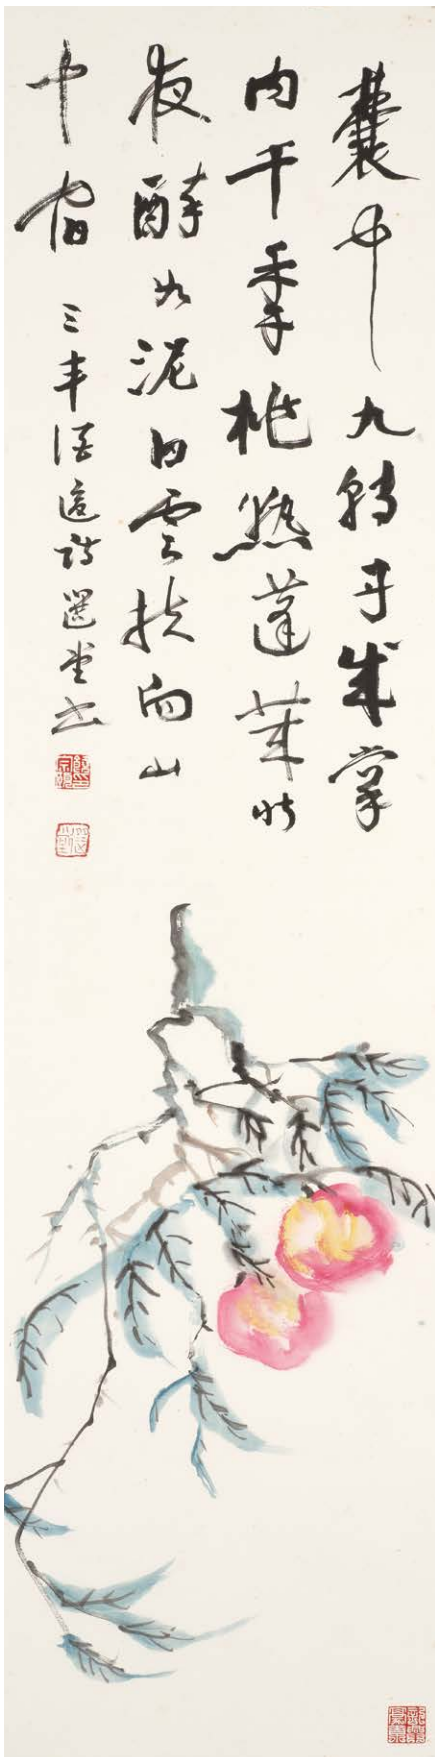 囊中九轉丹成掌
內千秊桃熟蓬萊昨
夜醉如泥白雲扶向山
中宿
三丰 詩選堂書